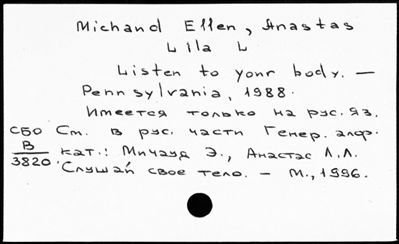 Michaud Ellen, Anastas
Lila L
Listen to your body. —
Pennsylvania, 1988.
Имеется только на рус. яз.
СБО См. в рус. части Генер. алф.
В кат.: Мичауд Э., Анастас Л.Л.
3820 Слушай свое тело. – М., 1996.